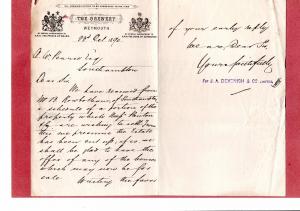 THE BREWERY
WEYMOUTH
28 Oct 1890
Esq
Southampton
Dear Sir
We have received from
Mr B. of Southampton
a schedule of a portion of the
property which Mess Panton
are wishing to sell. From
this we presume the Estate
has been cut up, if so we
shall be glad to have the
offer of any of the houses
which may now be for
sale
Waiting the favor
of your early reply
We are, Dear Sir,
Yours faithfully
For J. A. DEVENISH & CO. LIMITED